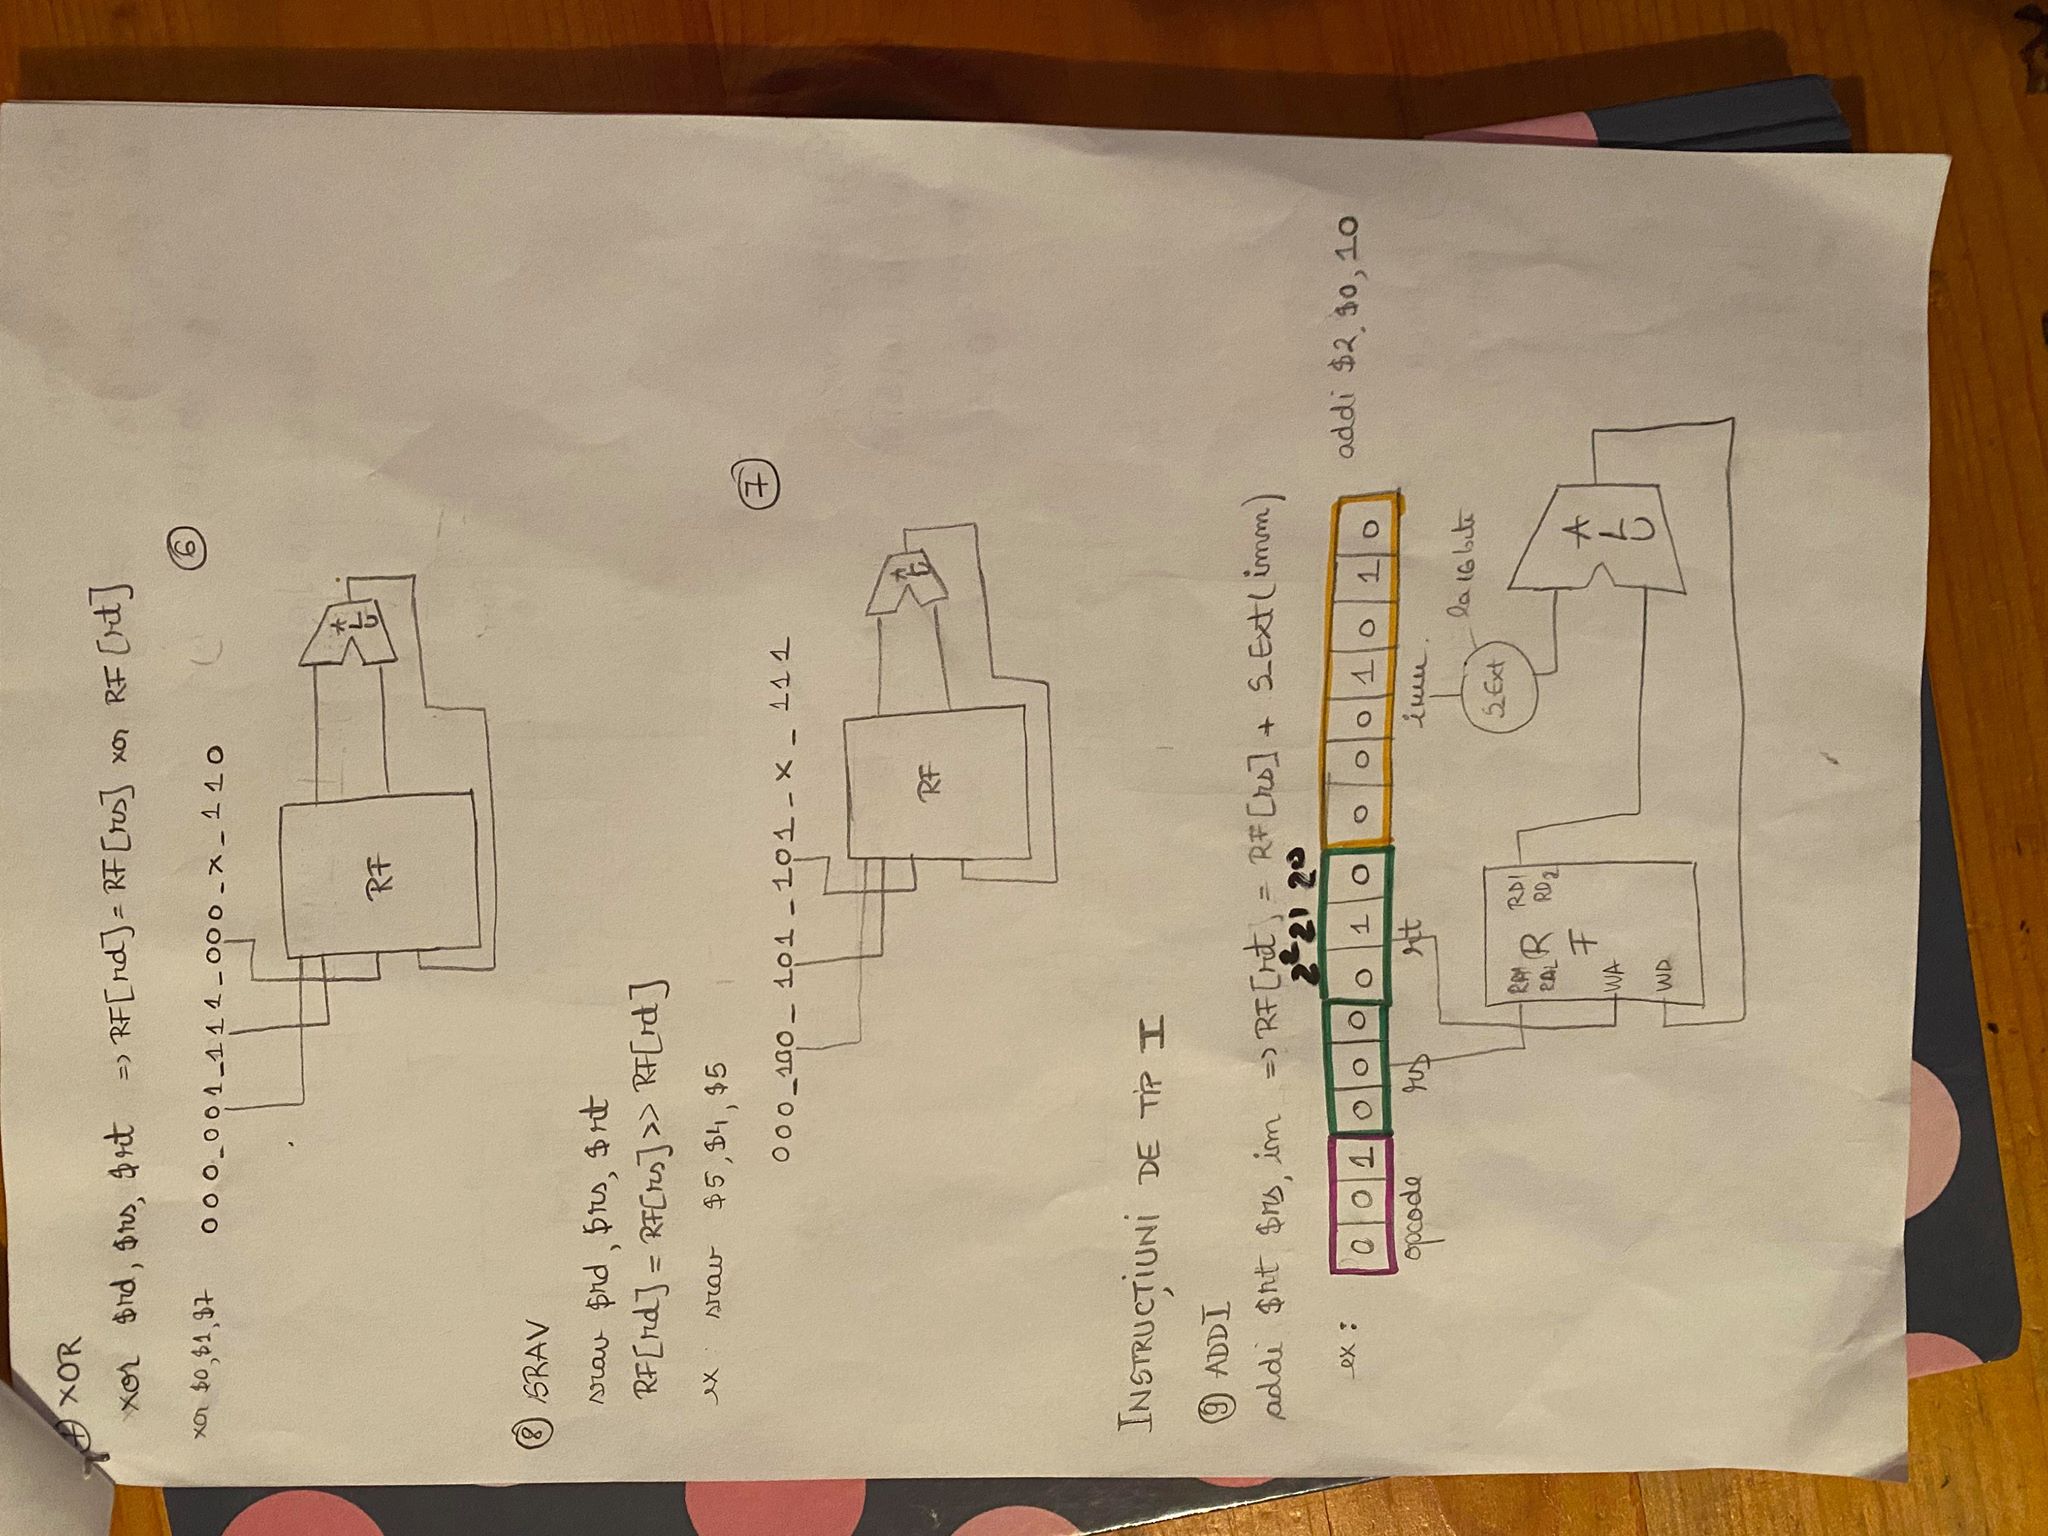 7 XOR
xor $rd, $rs, $rt => RF[rd] = RF[rs] xor RF[rt]
xor $0, $1, $7 000_001_111_000_x_110 6
RF
ALU
8 SRAV
srav $rd, $rs, $rt
RF[rd] = RF[rs] >> RF[rt]
ex: srav $5, $4, $5
7
000_100_101_101_x_111
RF
ALU
INSTRUCȚIUNI DE TIP I
9 ADDI
addi $rt $rs, im => RF[rt] = RF[rs] + S_Ext(imm)
2² 2¹ 2⁰
ex: 0 0 1 0 0 0 0 1 0 0 0 0 1 0 1 0 addi $2, $0, 10
opcode rs rt imm.
S_Ext la 16 biti
RA1 RD1
RA2 RD2
RF
WA
WD
ALU